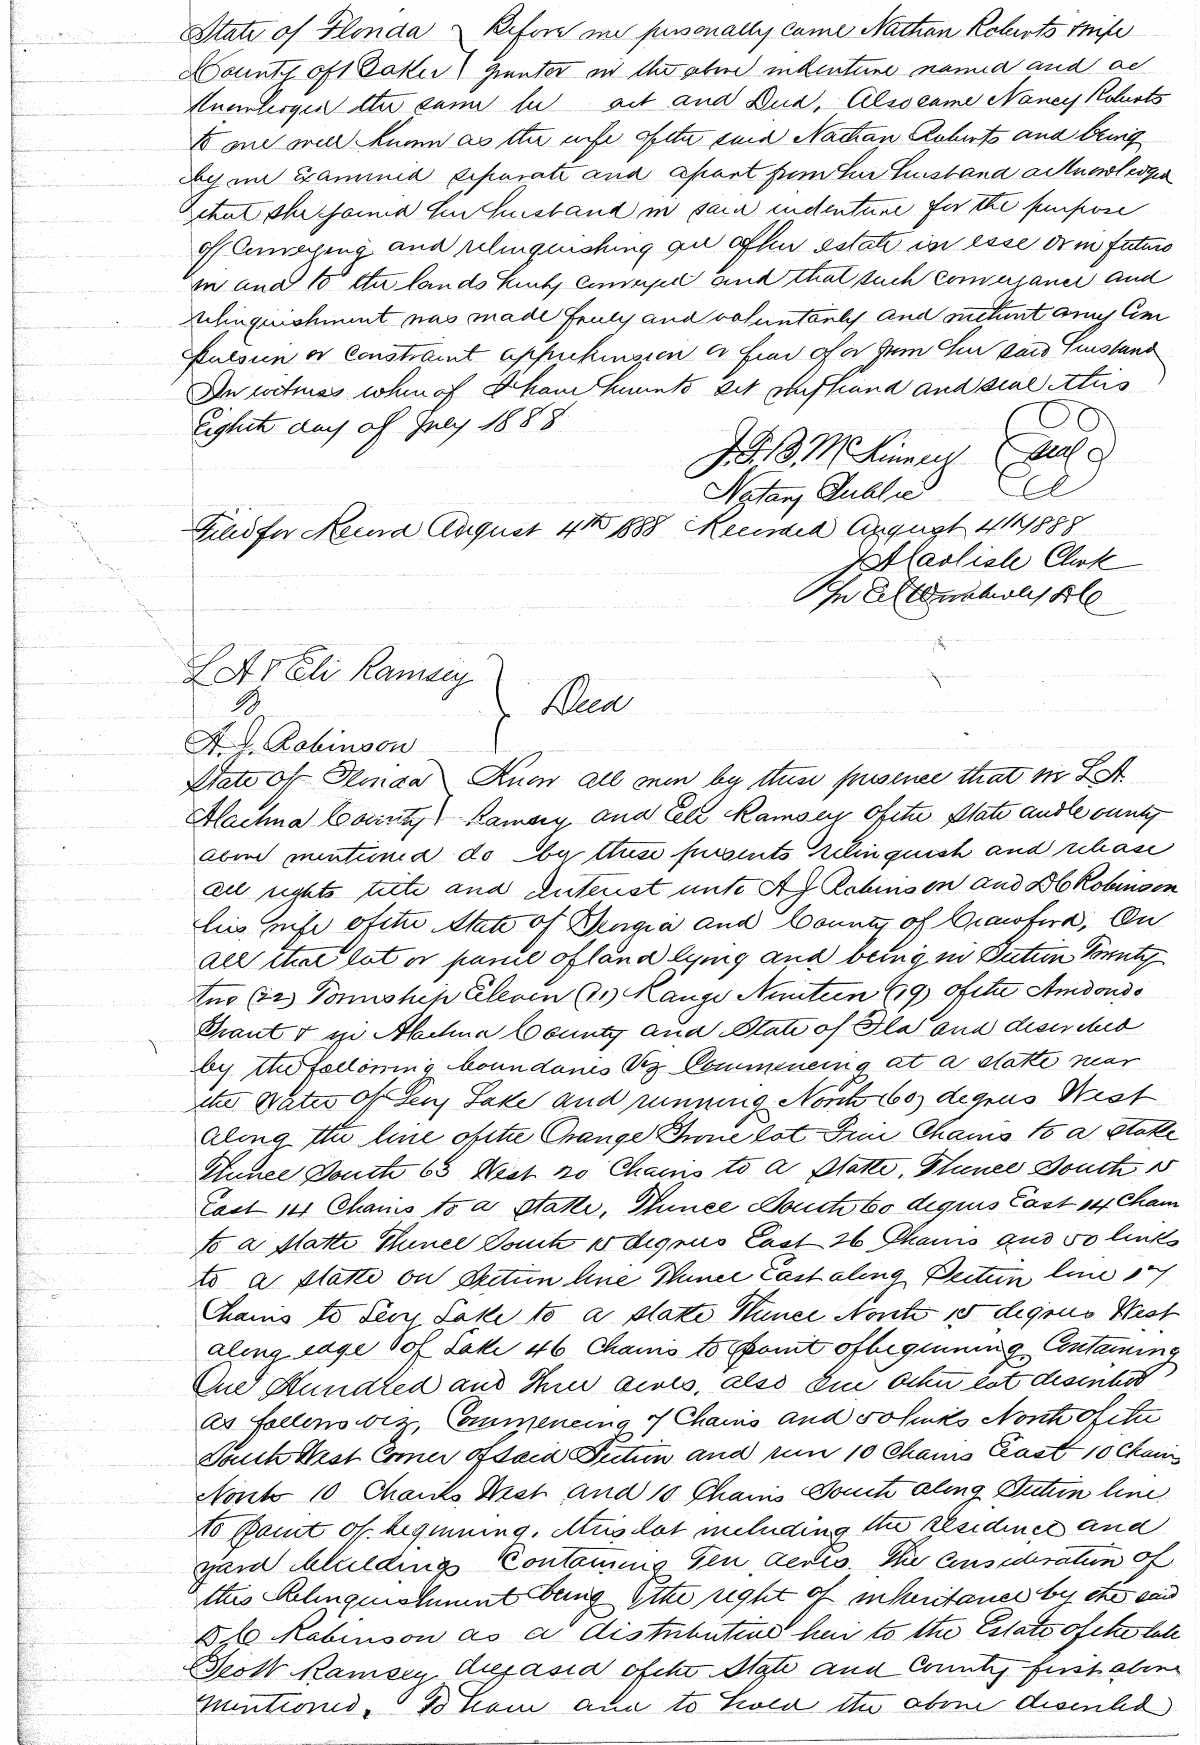 State of Florida } Before me personally came Nathan Roberts & wife
County of Baker } grantor in the above indenture named and ac
knowledged the same be act and Deed, Also came Nancy Roberts
to me well known as the wife of the said Nathan Roberts and being
by me examined separate and apart from her husband acknowledged
that she joined her husband in said indenture for the purpose
of Conveying and relinquishing all of her estate in esse or in futuro
in and to the lands hereby conveyed and that such conveyance and
relinquishment was made freely and voluntarily and without any Com
pulsion or constraint apprehension or fear of or from her said husband
In witness whereof I have hereunto set my hand and seal this
Eighth day of July 1888
J.F.B. McKinney Seal
Notary Public
Filed for Record August 4th 1888 Recorded August 4th 1888
Clerk
DC
L A & Eli Ramsey
To } Deed
A. J. Robinson
State of Florida } Know all men by these presence that we L A.
Alachua County } Ramsey and Eli Ramsey of the State and County
above mentioned do by these presents relinquish and release
all rights title and Interest unto A J Robinson and D C Robinson
his wife of the State of Georgia and County of Crawford, On
all that lot or parcel of land lying and being in Section Twenty
two (22) Township Eleven (11) Range Nineteen (19) of the Arredondo
Grant & in Alachua County and State of Fla and described
by the following boundaries Viz Commencing at a stake near
the Water of Levy Lake and running North (60) degrees West
along the line of the Orange Grove lot Five Chains to a stake
Thence South 63 West 20 Chains to a stake, Thence South 15
East 14 Chains to a stake, Thence South 60 degrees East 14 Chain
to a stake Thence South 15 degrees East 26 Chains and 50 links
to a stake on Section line Thence East along Section line 17
Chains to Levy Lake to a stake Thence North 15 degrees West
along edge of Lake 46 Chains to point of beginning Containing
One Hundred and Three acres, also one other lot described
as follows viz, Commencing 7 Chains and 50 links North of the
South West Corner of said Section and run 10 Chains East 10 Chains
North 10 Chains West and 10 Chains South along Section line
to point of beginning, this lot including the residence and
yard buildings Containing Ten acres. The consideration of
this Relinquishment being the right of inheritance by the said
D. C Robinson as a distributive heir to the Estate of the late
Scott Ramsey deceased of the State and County first above
mentioned. To have and to hold the above described